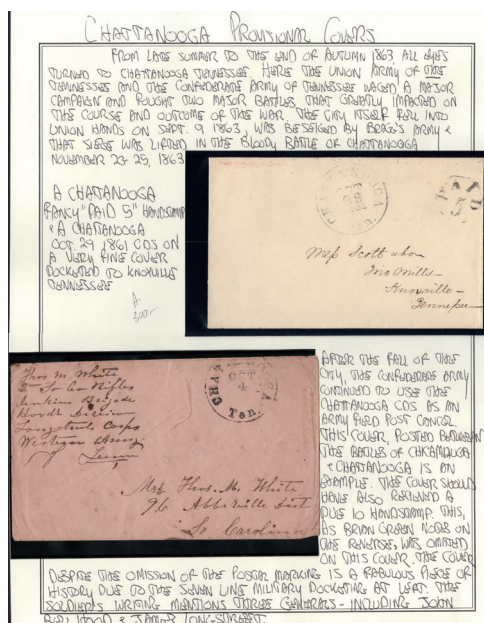 CHATTANOOGA PROVISIONAL COVERS
FROM LATE SUMMER TO THE END OF AUTUMN 1863 ALL EYES
TURNED TO CHATTANOOGA TENNESSEE. HERE THE UNION ARMY OF THE
TENNESSEE AND THE CONFEDERATE ARMY OF TENNESSEE WAGED A MAJOR
CAMPAIGN AND FOUGHT TWO MAJOR BATTLES THAT GREATLY IMPACTED ON
THE COURSE AND OUTCOME OF THE WAR. THE CITY ITSELF FELL INTO
UNION HANDS ON SEPT. 9 1863, WAS BESEIGED BY BRAGG'S ARMY &
THAT SIEGE WAS LIFTED IN THE BLOODY BATTLE OF CHATTANOOGA
NOVEMBER 23-25, 1863
A CHATTANOOGA
FANCY "PAID 5" HANDSTAMP
& A CHATTANOOGA
OCT. 29 1861 CDS ON
A VERY FINE COVER
DOCKETED TO KNOXVILLE
TENNESSEE
A
300-
PAID
5
Mess Scott & bro
Ino Mills
Knoxville
Tennessee
Thos M White
So Ca Rifles
Jenkins Brigade
Hoods Division
Longstreets Corps
Western Army
of Tenn
CHATTANOOGA
OCT
4
Ten.
Mrs Thos. M. White
96 Abbeville Dist
So Carolina
AFTER THE FALL OF THE
CITY, THE CONFEDERATE ARMY
CONTINUED TO USE THE
CHATTANOOGA CDS AS AN
ARMY FIELD POST CANCEL.
THIS COVER, POSTED BETWEEN
THE BATTLES OF CHICAMAUGA
& CHATTANOOGA IS AN
EXAMPLE. THE COVER SHOULD
HAVE ALSO RECEIVED A
DUE 10 HANDSTAMP. THIS,
AS BRIAN GREEN NOTES ON
THE REVERSE, WAS OMITTED
ON THIS COVER. THE COVER
DESPITE THE OMISSION OF THE POSTAL MARKING IS A FABULOUS PIECE OF
HISTORY DUE TO THE SEVEN LINE MILITARY DOCKETING AT LEFT. THE
SOLDIER'S WRITING MENTIONS THREE GENERALS - INCLUDING JOHN
BELL HOOD & JAMES LONGSTREET